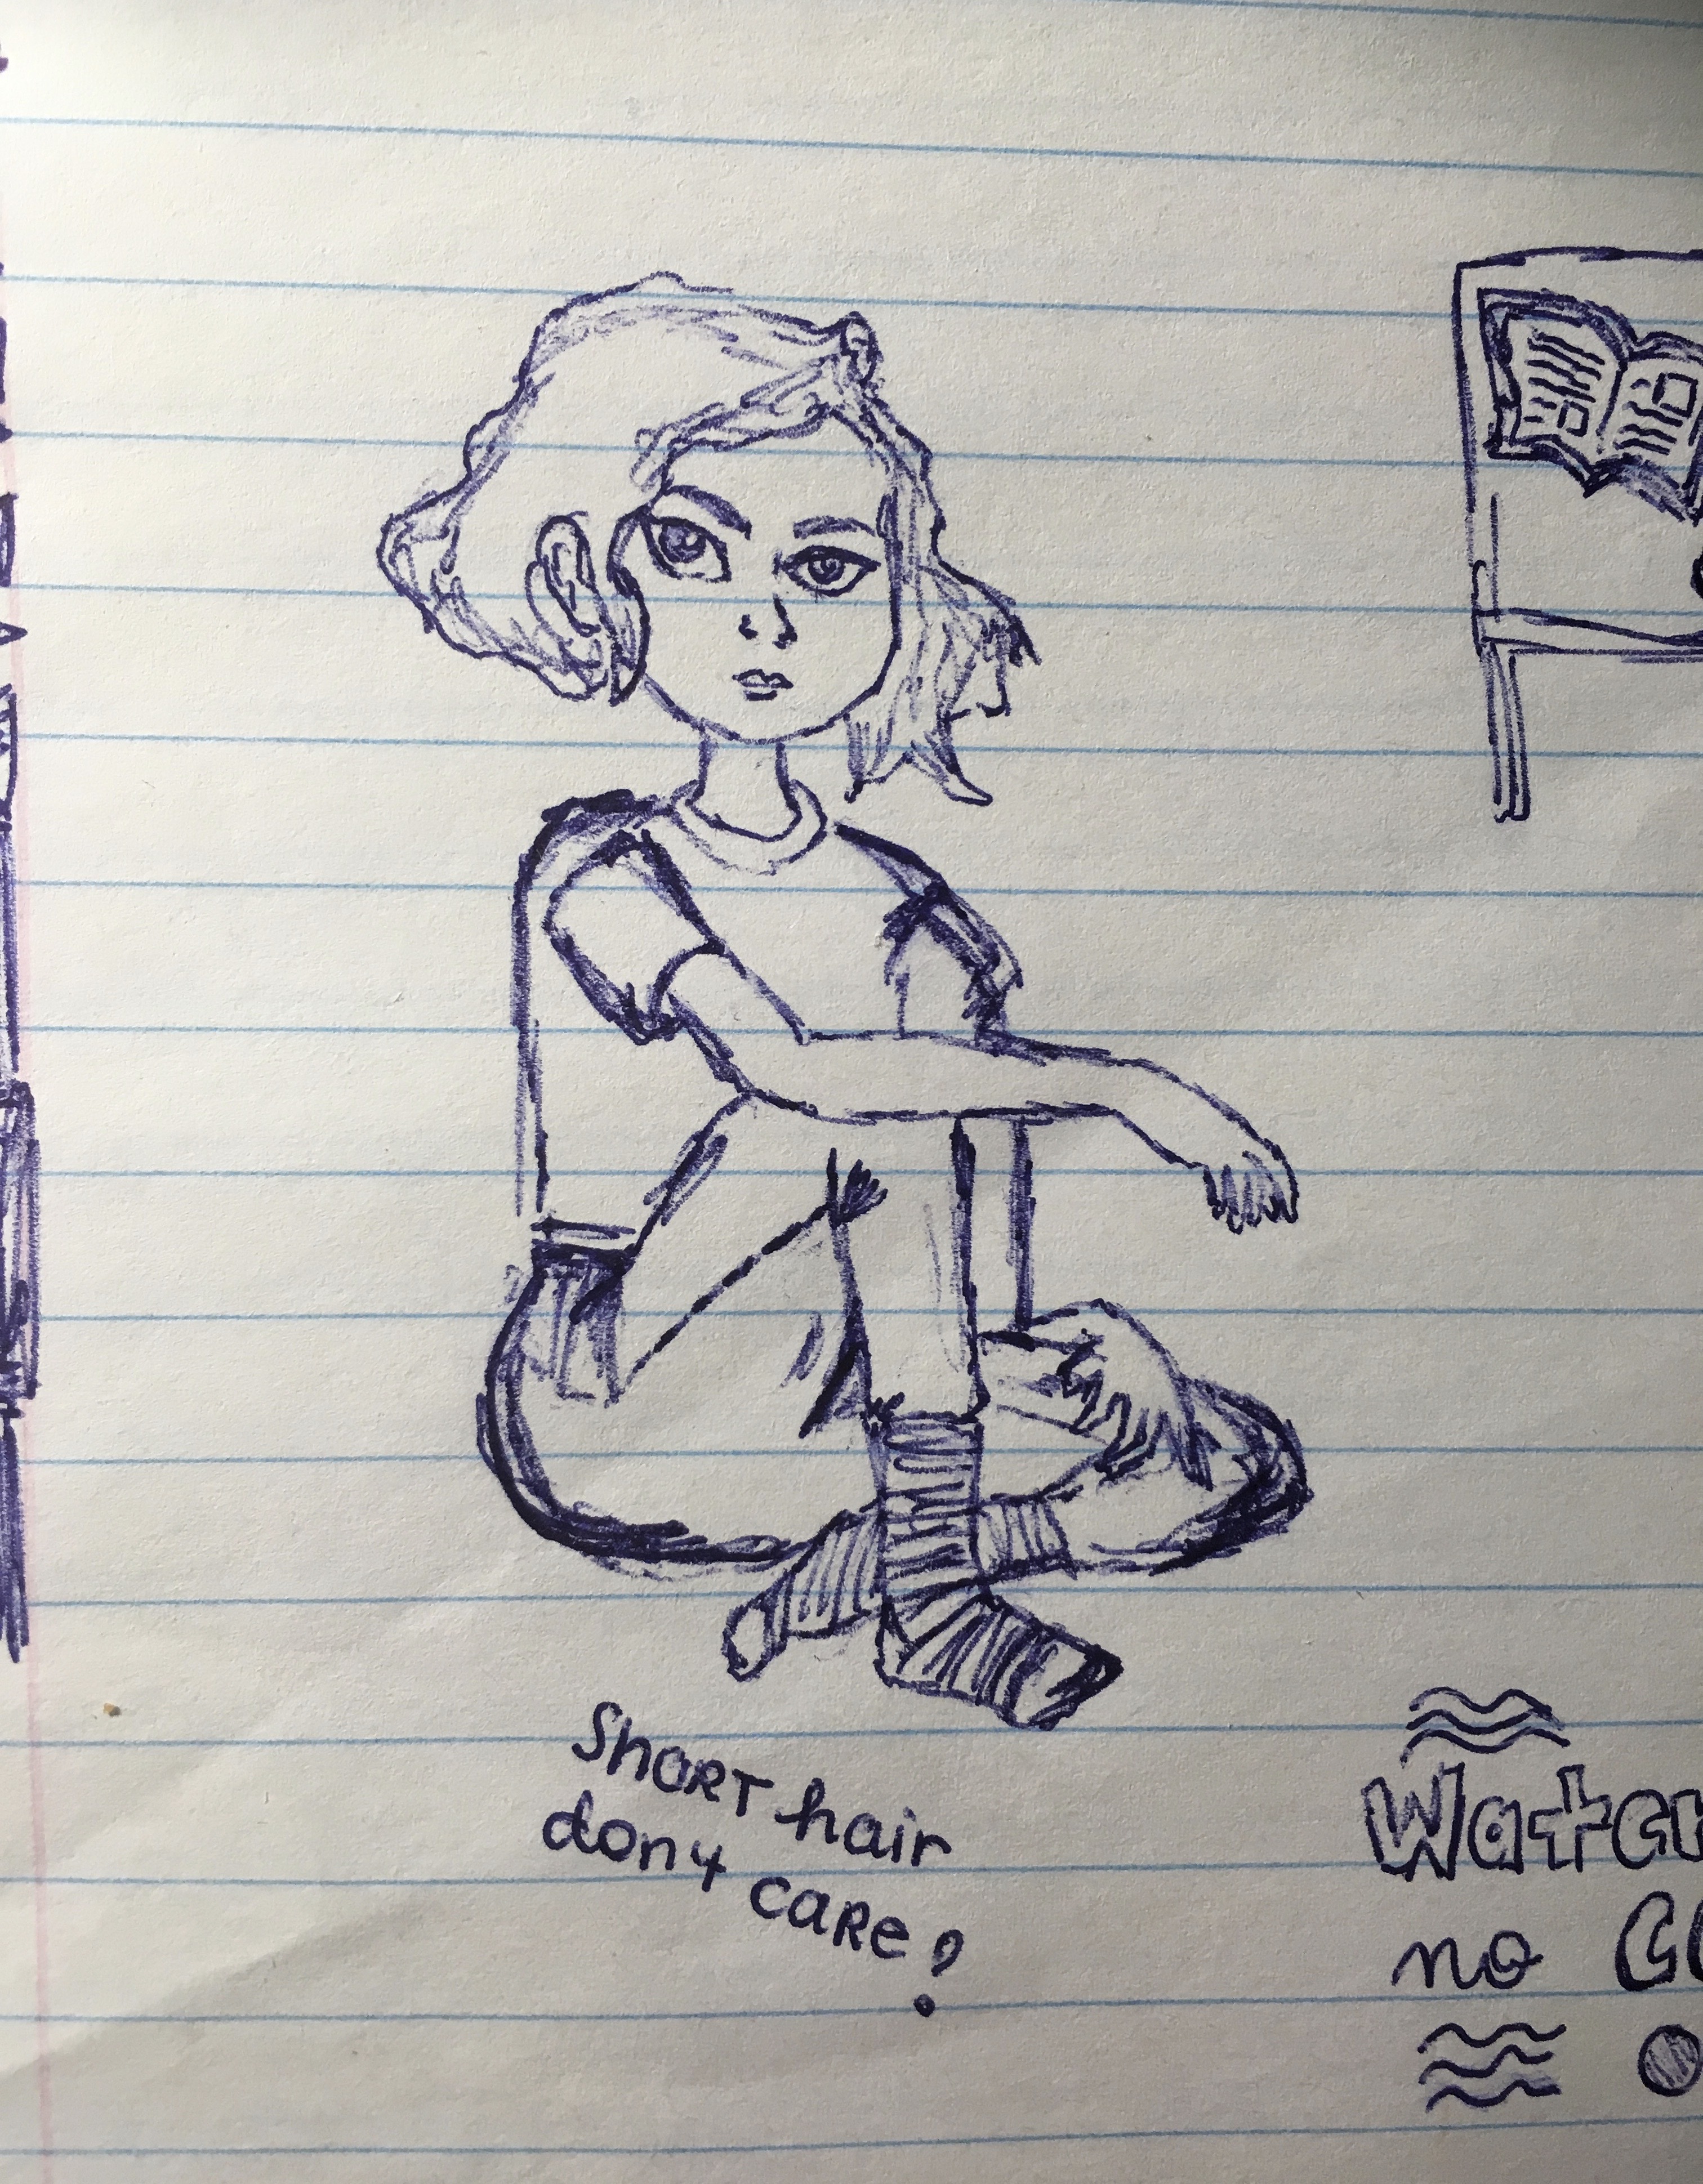 Short hair
don4 care!
Water
no